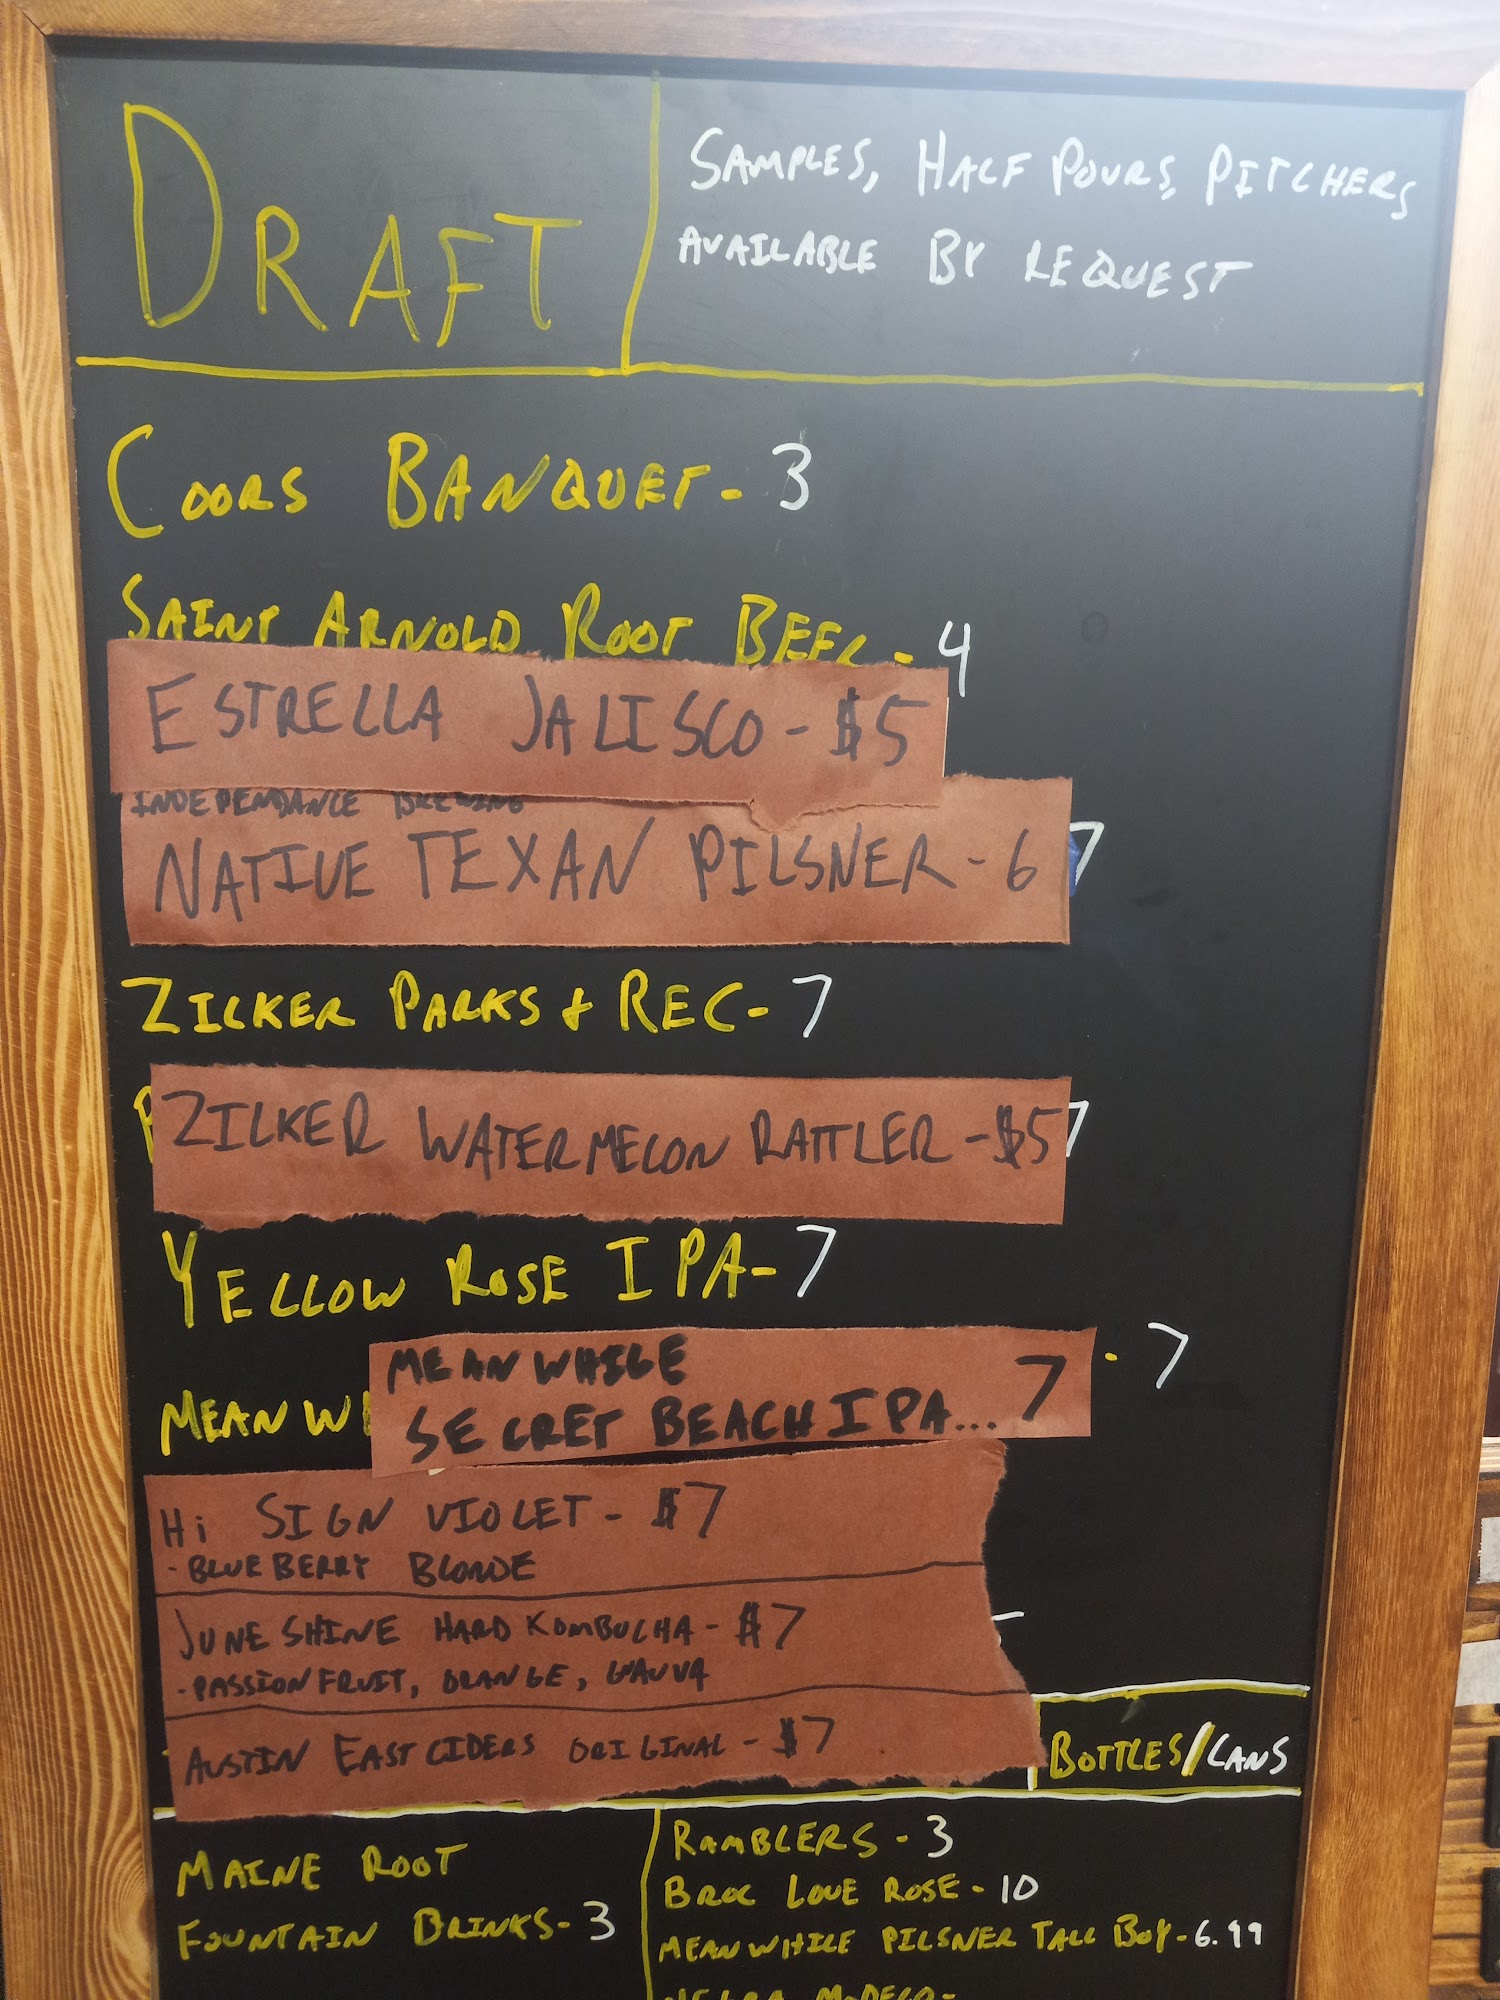 DRAFT
SAMPLES, HALF POURS, PITCHERS
AVAILABLE BY REQUEST
COORS BANQUET - 3
SAINT ARNOLD ROOT BEER - 4
ESTRELLA JALISCO - $5
INDEPENDANCE BREWING
NATIVE TEXAN PILSNER - 6
7
ZILKER PARKS + REC - 7
ZILKER WATERMELON RATTLER - $5
7
YELLOW ROSE IPA - 7
MEANWHILE
SECRET BEACH IPA... 7
- 7
MEANWH
Hi SIGN VIOLET - $7
- BLUEBERRY BLONDE
JUNESHINE HARD KOMBUCHA - $7
- PASSIONFRUIT, ORANGE, GUAVVA
AUSTIN EASTCIDERS ORIGINAL - $7
BOTTLES/CANS
MAINE ROOT
FOUNTAIN DRINKS - 3
RAMBLERS - 3
BROC LOVE ROSE - 10
MEANWHILE PILSNER TALL BOY - 6.99
NEGRA MODELO -